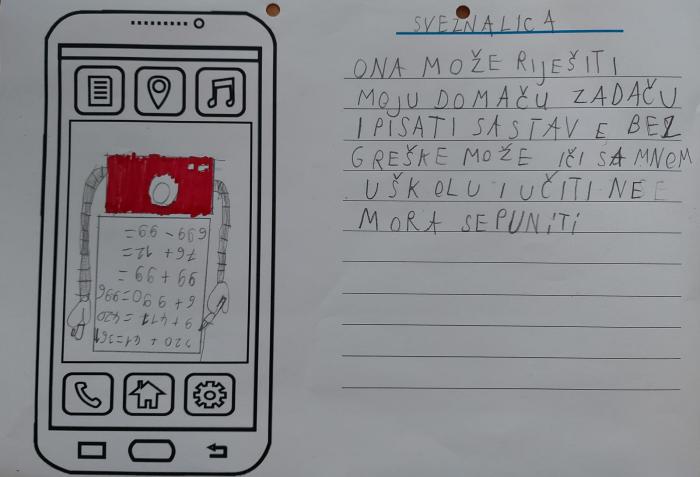 SVEZNALICA
ONA MOŽE RIJEŠITI
MOJU DOMAČU ZADAČU
I PISATI SASTAV E BEZ
GREŠKE MOŽE IČI SA MNOM
U ŠKOLU I UČITI NE E
MORA SE PUNITI
320 + 41=361
9+411=420
6+990=996
99+99=
76+12=
699-99=